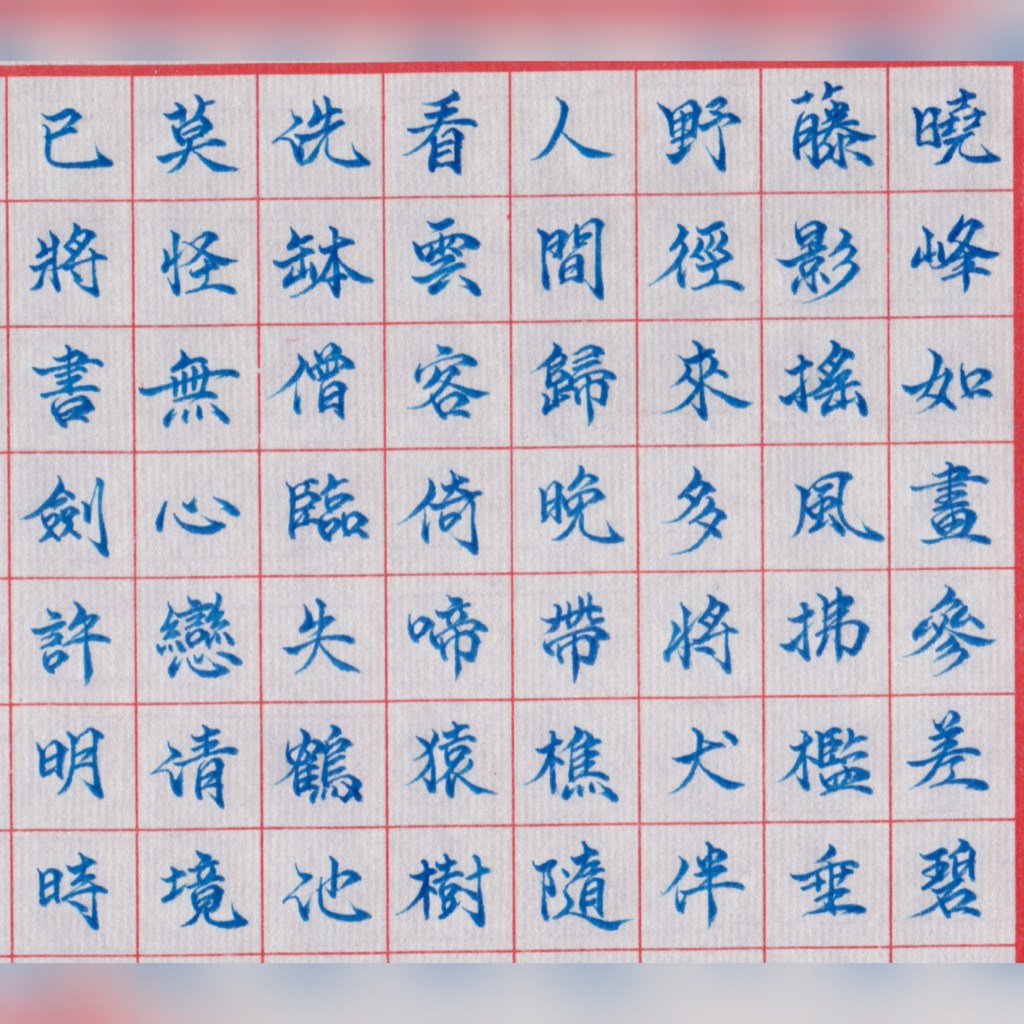 曉峰如畫參差碧
藤影搖風拂檻垂
野徑來多將犬伴
人間歸晚帶樵隨
看雲客倚啼猿樹
洗缽僧臨失鶴池
莫怪無心戀清境
已將書劍許明時